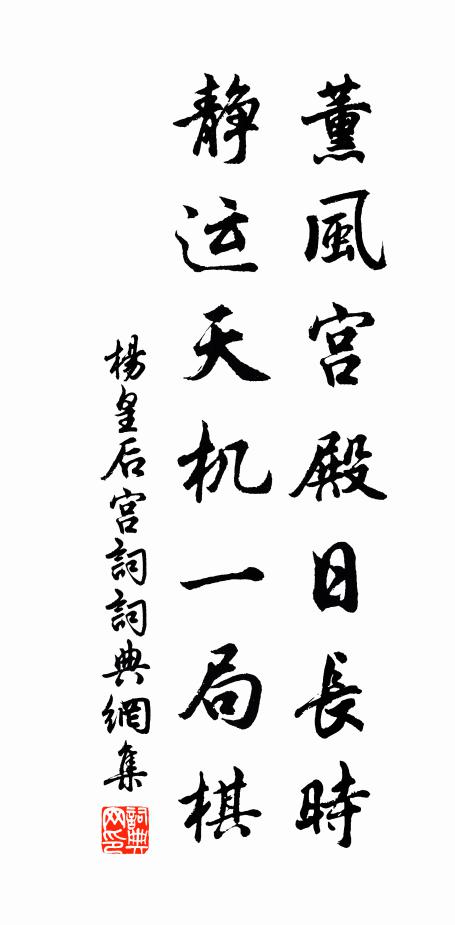 薰風宫殿日長時
静运天机一局棋
楊皇后宫詞詞典網集
詞典网印